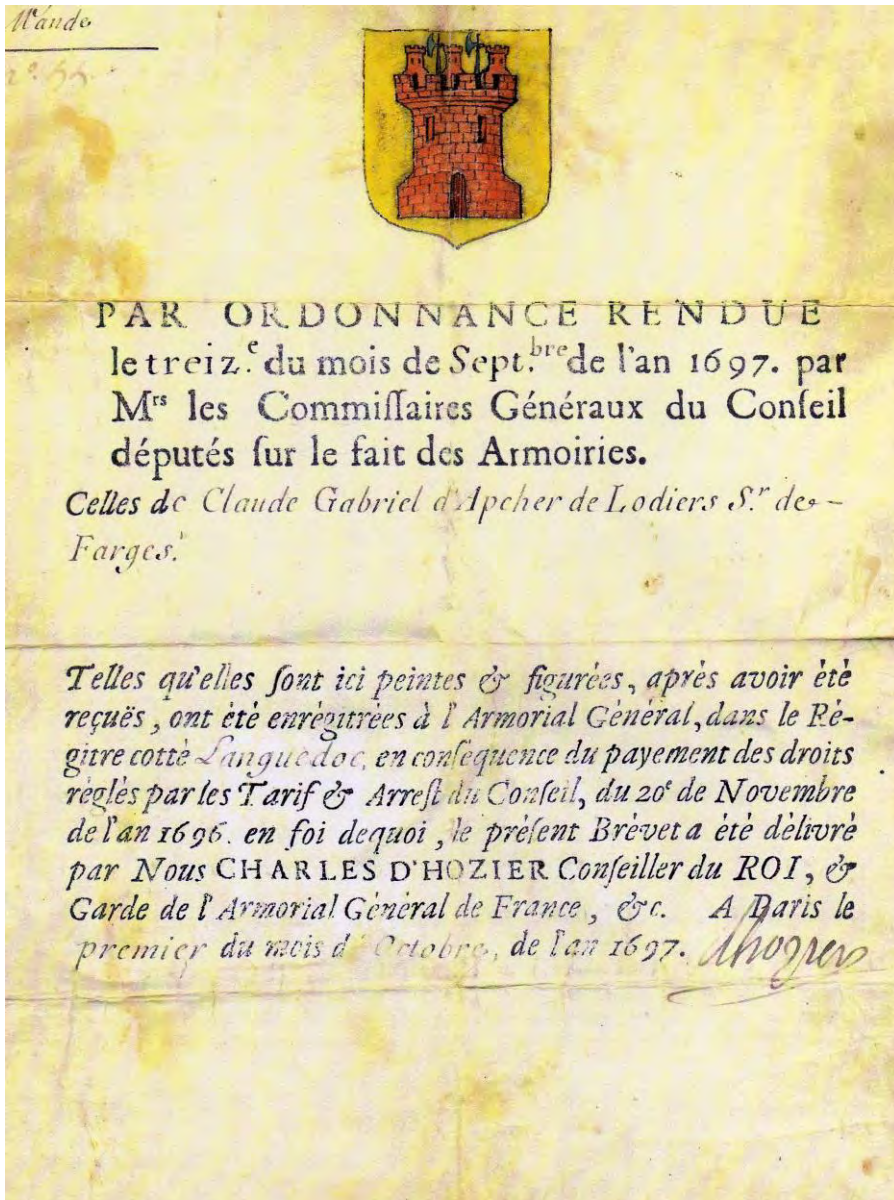 Mande
n.º 55.
PAR ORDONNANCE RENDUE
le treiz.e du mois de Sept.bre de l'an 1697. par
Mrs les Commiſſaires Généraux du Conſeil
députés ſur le fait des Armoiries.
Celles de Claude Gabriel d'Apcher de Lodiers S.r de
Farges.
Telles qu'elles ſont ici peintes & figurées, après avoir èté
reçuës, ont èté enrégitrées à l'Armorial Général, dans le Ré-
gitre cotté Languedoc, en conſéquence du payement des droits
réglés par les Tarif & Arreſt du Conſeil, du 20e de Novembre
de l'an 1696. en foi dequoi, le préſent Brévet a èté délivré
par Nous CHARLES D'HOZIER Conſeiller du ROI, &
Garde de l'Armorial Général de France, &c. A Paris le
premier du mois d'Octobre, de l'an 1697. dhozier